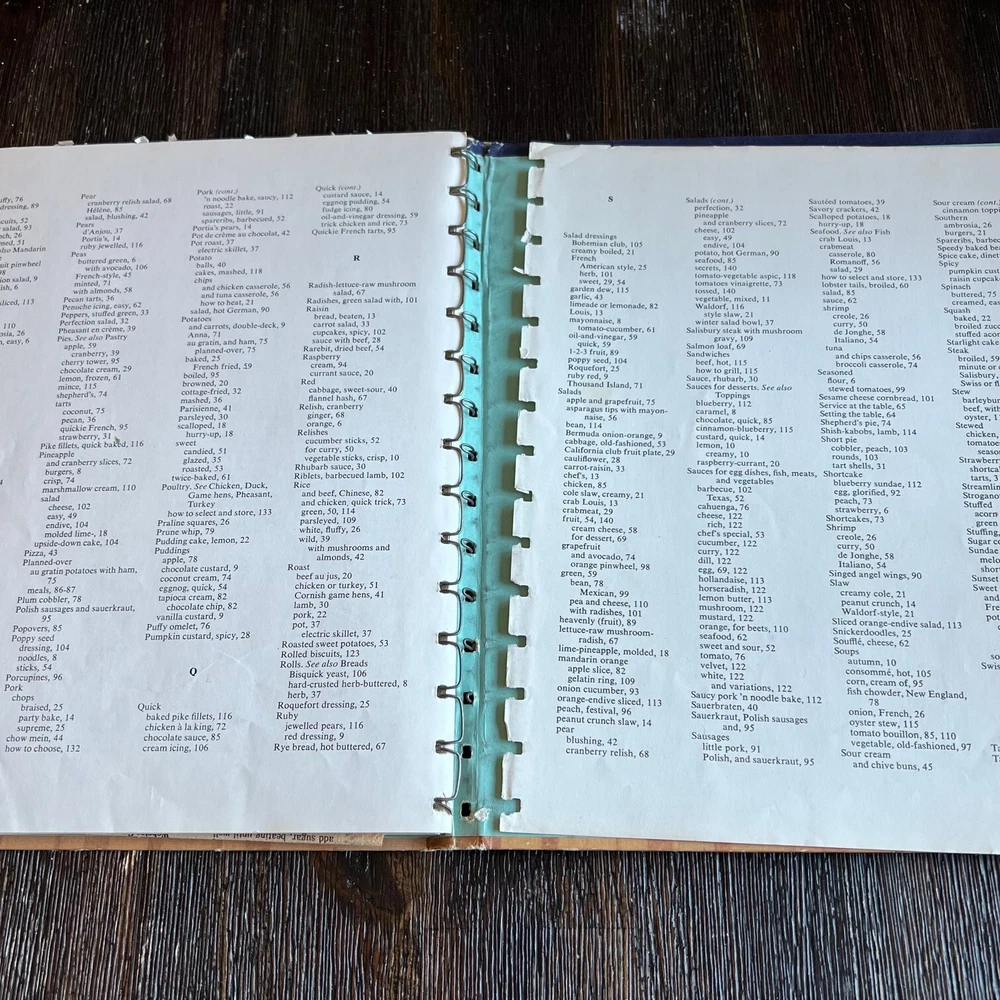 uffy, 76
dressing, 89
cuits, 52
salad, 93
nch, 26
med, 51
also Mandarin
it pinwheel
98
nion salad, 9
lish, 6
sliced, 113
110
26
n, easy, 6
Pear
cranberry relish salad, 68
Hélène, 85
salad, blushing, 42
Pears
d'Anjou, 37
Portia's, 14
ruby jewelled, 116
Peas
buttered green, 6
with avocado, 106
French-style, 43
minted, 71
with almonds, 58
Pecan tarts, 36
Penuche icing, easy, 62
Peppers, stuffed green, 33
Perfection salad, 32
Pheasant en crème, 39
Pies. See also Pastry
apple, 59
cranberry, 39
cherry tower, 95
chocolate cream, 29
lemon, frozen, 61
mince, 115
shepherd's, 74
tarts
coconut, 75
pecan, 36
quickie French, 95
strawberry, 31
Pike fillets, quick baked, 116
Pineapple
and cranberry slices, 72
burgers, 8
crisp, 74
marshmallow cream, 110
salad
cheese, 102
easy, 49
endive, 104
molded lime-, 18
upside-down cake, 104
Pizza, 43
Planned-over
au gratin potatoes with ham,
75
meals, 86-87
Plum cobbler, 78
Polish sausages and sauerkraut,
95
Popovers, 85
Poppy seed
dressing, 104
noodles, 8
sticks, 54
Porcupines, 96
Pork
chops
braised, 25
party bake, 14
supreme, 25
chow mein, 44
how to choose, 132
Pork (cont.)
'n noodle bake, saucy, 112
roast, 22
sausages, little, 91
spareribs, barbecued, 52
Portia's pears, 14
Pot de crème au chocolat, 42
Pot roast, 37
electric skillet, 37
Potato
balls, 40
cakes, mashed, 118
chips
and chicken casserole, 56
and tuna casserole, 56
how to heat, 21
salad, hot German, 90
Potatoes
and carrots, double-deck, 9
Anna, 71
au gratin, and ham, 75
planned-over, 75
baked, 25
French fried, 59
boiled, 95
browned, 20
cottage-fried, 32
mashed, 36
Parisienne, 41
parsleyed, 30
scalloped, 18
hurry-up, 18
sweet
candied, 51
glazed, 35
roasted, 53
twice-baked, 61
Poultry. See Chicken, Duck,
Game hens, Pheasant,
Turkey
how to select and store, 133
Praline squares, 26
Prune whip, 79
Pudding cake, lemon, 22
Puddings
apple, 78
chocolate custard, 9
coconut cream, 74
eggnog, quick, 54
tapioca cream, 82
chocolate chip, 82
vanilla custard, 9
Puffy omelet, 76
Pumpkin custard, spicy, 28
Q
Quick
baked pike fillets, 116
chicken à la king, 72
chocolate sauce, 85
cream icing, 106
Quick (cont.)
custard sauce, 14
eggnog pudding, 54
fudge icing, 80
oil-and-vinegar dressing, 59
trick chicken and rice, 73
Quickie French tarts, 95
R
Radish-lettuce-raw mushroom
salad, 67
Radishes, green salad with, 101
Raisin
bread, beaten, 13
carrot salad, 33
cupcakes, spicy, 102
sauce with beef, 28
Rarebit, dried beef, 54
Raspberry
cream, 94
currant sauce, 20
Red
cabbage, sweet-sour, 40
flannel hash, 67
Relish, cranberry
ginger, 68
orange, 6
Relishes
cucumber sticks, 52
for curry, 50
vegetable sticks, crisp, 10
Rhubarb sauce, 30
Riblets, barbecued lamb, 102
Rice
and beef, Chinese, 82
and chicken, quick trick, 73
green, 50, 114
parsleyed, 109
white, fluffy, 26
wild, 39
with mushrooms and
almonds, 42
Roast
beef au jus, 20
chicken or turkey, 51
Cornish game hens, 41
lamb, 30
pork, 22
pot, 37
electric skillet, 37
Roasted sweet potatoes, 53
Rolled biscuits, 123
Rolls. See also Breads
Bisquick yeast, 106
hard-crusted herb-buttered, 8
herb, 37
Roquefort dressing, 25
Ruby
jewelled pears, 116
red dressing, 9
Rye bread, hot buttered, 67
add sugar, beating until well
S
Salad dressings
Bohemian club, 105
creamy boiled, 21
French
American style, 25
herb, 101
sweet, 29, 54
garden dew, 115
garlic, 43
limeade or lemonade, 82
Louis, 13
mayonnaise, 8
tomato-cucumber, 61
oil-and-vinegar, 59
quick, 59
1-2-3 fruit, 89
poppy seed, 104
Roquefort, 25
ruby red, 9
Thousand Island, 71
Salads
apple and grapefruit, 75
asparagus tips with mayon-
naise, 56
bean, 114
Bermuda onion-orange, 9
cabbage, old-fashioned, 53
California club fruit plate, 29
cauliflower, 28
carrot-raisin, 33
chef's, 13
chicken, 85
cole slaw, creamy, 21
crab Louis, 13
crabmeat, 29
fruit, 54, 140
cream cheese, 58
for dessert, 69
grapefruit
and avocado, 74
orange pinwheel, 98
green, 59
bean, 78
Mexican, 99
pea and cheese, 110
with radishes, 101
heavenly (fruit), 89
lettuce-raw mushroom-
radish, 67
lime-pineapple, molded, 18
mandarin orange
apple slice, 82
gelatin ring, 109
onion cucumber, 93
orange-endive sliced, 113
peach, festival, 96
peanut crunch slaw, 14
pear
blushing, 42
cranberry relish, 68
Salads (cont.)
perfection, 32
pineapple
and cranberry slices, 72
cheese, 102
easy, 49
endive, 104
potato, hot German, 90
seafood, 85
secrets, 140
tomato-vegetable aspic, 118
tomatoes vinaigrette, 73
tossed, 140
vegetable, mixed, 11
Waldorf, 116
style slaw, 21
winter salad bowl, 37
Salisbury steak with mushroom
gravy, 109
Salmon loaf, 69
Sandwiches
beef, hot, 115
how to grill, 115
Sauce, rhubarb, 30
Sauces for desserts. See also
Toppings
blueberry, 112
caramel, 8
chocolate, quick, 85
cinnamon-blueberry, 115
custard, quick, 14
lemon, 10
creamy, 10
raspberry-currant, 20
Sauces for egg dishes, fish, meats,
and vegetables
barbecue, 102
Texas, 52
cahuenga, 76
cheese, 122
rich, 122
chef's special, 53
cucumber, 122
curry, 122
dill, 122
egg, 69, 122
hollandaise, 113
horseradish, 122
lemon butter, 113
mushroom, 122
mustard, 122
orange, for beets, 110
seafood, 62
sweet and sour, 52
tomato, 76
velvet, 122
white, 122
and variations, 122
Saucy pork 'n noodle bake, 112
Sauerbraten, 40
Sauerkraut, Polish sausages
and, 95
Sausages
little pork, 91
Polish, and sauerkraut, 95
Sautéed tomatoes, 39
Savory crackers, 42
Scalloped potatoes, 18
hurry-up, 18
Seafood. See also Fish
crab Louis, 13
crabmeat
casserole, 80
Romanoff, 56
salad, 29
how to select and store, 133
lobster tails, broiled, 60
salad, 85
sauce, 62
shrimp
creole, 26
curry, 50
de Jonghe, 58
Italian, 54
tuna
and chips casserole, 56
broccoli casserole, 74
Seasoned
flour, 6
stewed tomatoes, 99
Sesame cheese cornbread, 101
Service at the table, 65
Setting the table, 64
Shepherd's pie, 74
Shish-kabobs, lamb, 114
Short pie
cobbler, peach, 103
rounds, 103
tart shells, 31
Shortcake
blueberry sundae, 112
egg, glorified, 92
peach, 73
strawberry, 6
Shortcakes, 73
Shrimp
creole, 26
curry, 50
de Jonghe, 58
Italian, 54
Singed angel wings, 90
Slaw
creamy cole, 21
peanut crunch, 14
Waldorf-style, 21
Sliced orange-endive salad, 113
Snickerdoodles, 25
Soufflé, cheese, 62
Soups
autumn, 10
consommé, hot, 105
corn, cream of, 95
fish chowder, New England,
78
onion, French, 26
oyster stew, 115
tomato bouillon, 85, 110
vegetable, old-fashioned, 97
Sour cream
and chive buns, 45
Sour cream (cont.)
cinnamon topp
Southern
ambrosia, 26
burgers, 21
Spareribs, barbec
Speedy baked bea
Spice cake, dinett
Spicy
pumpkin cus
raisin cupcak
Spinach
buttered, 75
creamed, eas
Squash
baked, 22
broiled zucc
stuffed acor
Starlight cake
Steak
broiled, 59
minute or c
Salisbury,
Swiss, in
Stew
barleybur
beef, with
oyster, 11
Stewed
chicken,
tomatoe
season
Strawberr
shortcak
tarts, 3
Streamlin
Strogano
Stuffed
acorn
green
Stuffing,
Sugar co
Sundae
melo
short
Sunset
Sweet
and
Fre
pot
Swis
Ta
Ta